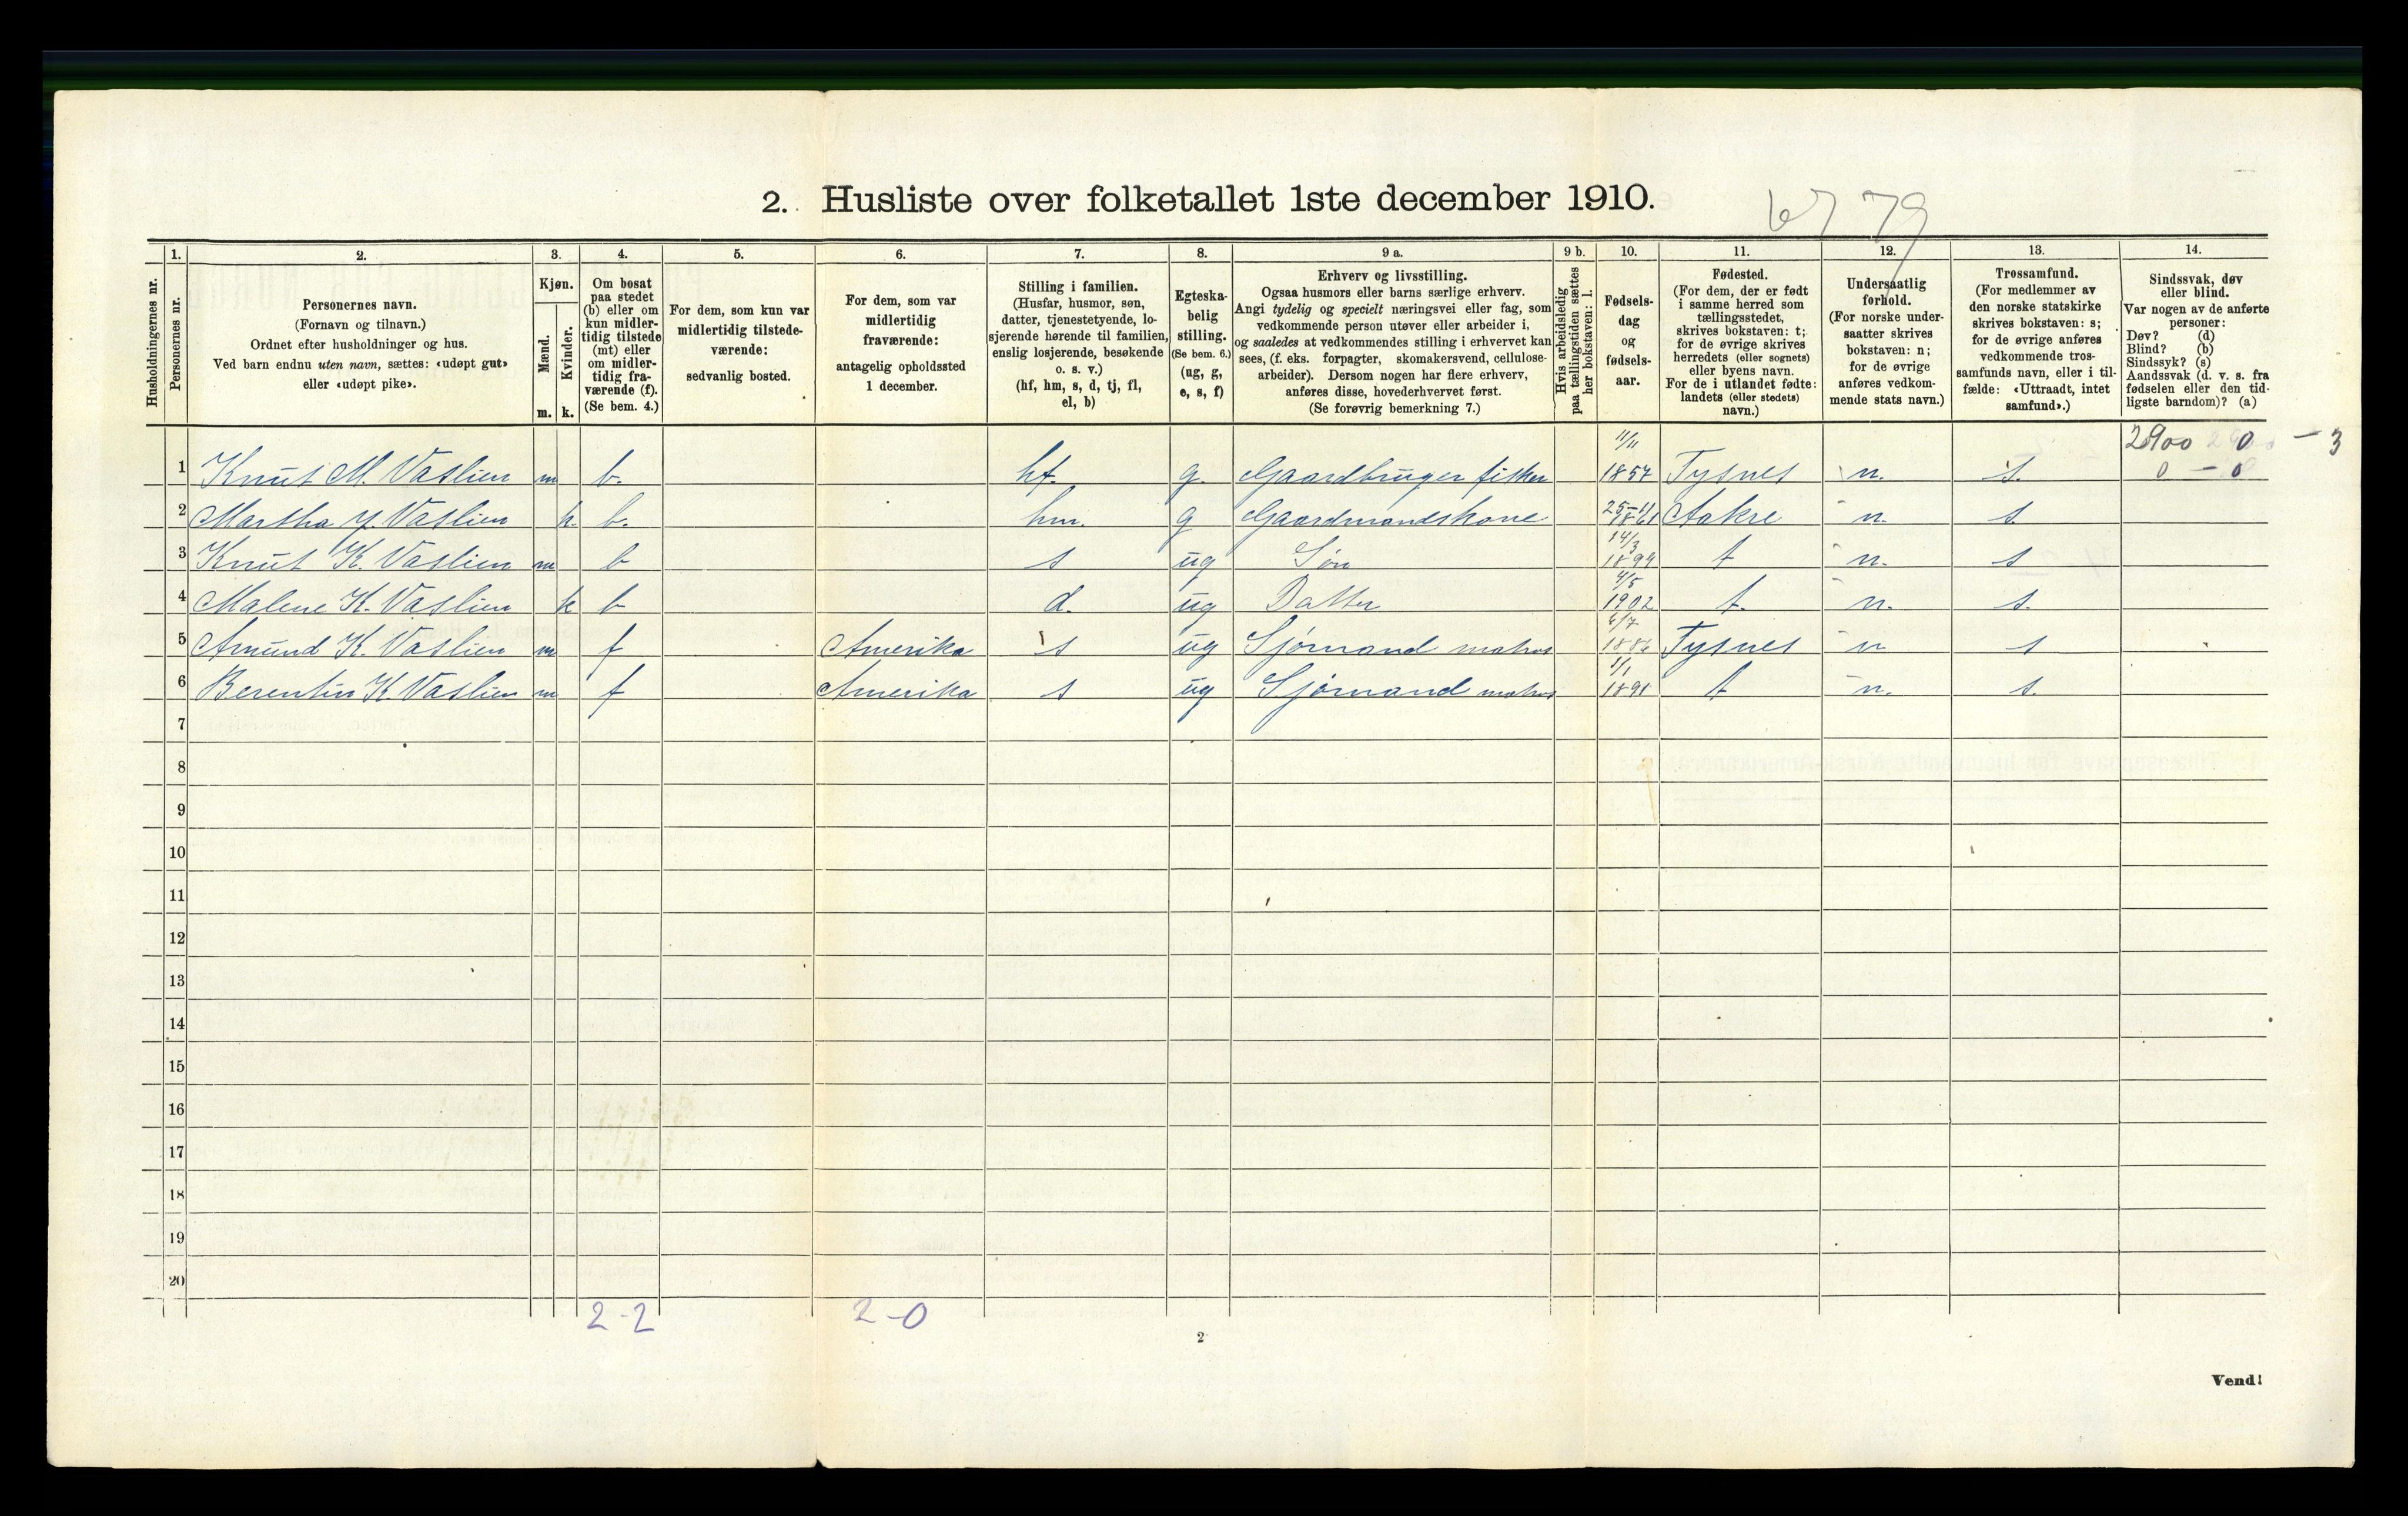 2. Husliste over folketallet 1ste december 1910.
67 79
1. 2. 3. 4. 5. 6. 7. 8. 9 a. 9 b. 10. 11. 12. 13. 14.
Husholdningernes nr.
Personernes nr.
Personernes navn.
(Fornavn og tilnavn.)
Ordnet efter husholdninger og hus.
Ved barn endnu uten navn, sættes: «udøpt gut»
eller «udøpt pike».
Kjøn.
Mænd.
Kvinder.
m. k.
Om bosat
paa stedet
(b) eller om
kun midler-
tidig tilstede
(mt) eller
om midler-
tidig fra-
værende (f).
(Se bem. 4.)
For dem, som kun var
midlertidig tilstede-
værende:
sedvanlig bosted.
For dem, som var
midlertidig
fraværende:
antagelig opholdssted
1 december.
Stilling i familien.
(Husfar, husmor, søn,
datter, tjenestetyende, lo-
sjerende hørende til familien,
enslig losjerende, besøkende
o. s. v.)
(hf, hm, s, d, tj, fl,
el, b)
Egteska-
belig
stilling.
(Se bem. 6.)
(ug, g,
e, s, f)
Erhverv og livsstilling.
Ogsaa husmors eller barns særlige erhverv.
Angi tydelig og specielt næringsvei eller fag, som
vedkommende person utøver eller arbeider i,
og saaledes at vedkommendes stilling i erhvervet kan
sees, (f. eks. forpagter, skomakersvend, cellulose-
arbeider). Dersom nogen har flere erhverv,
anføres disse, hovederhvervet først.
(Se forøvrig bemerkning 7.)
Hvis arbeidsledig
paa tællingstiden sættes
her bokstaven: l.
Fødsels-
dag
og
fødsels-
aar.
Fødested.
(For dem, der er født
i samme herred som
tællingsstedet,
skrives bokstaven: t;
for de øvrige skrives
herredets (eller sognets)
eller byens navn.
For de i utlandet fødte:
landets (eller stedets)
navn.)
Undersaatlig
forhold.
(For norske under-
saatter skrives
bokstaven: n;
for de øvrige
anføres vedkom-
mende stats navn.)
Trossamfund.
(For medlemmer av
den norske statskirke
skrives bokstaven: s;
for de øvrige anføres
vedkommende tros-
samfunds navn, eller i til-
fælde: «Uttraadt, intet
samfund».)
Sindssvak, døv
eller blind.
Var nogen av de anførte
personer:
Døv? (d)
Blind? (b)
Sindssyk? (s)
Aandssvak (d. v. s. fra
fødselen eller den tid-
ligste barndom)? (a)
2900 0 - 3
0 - 0
1 Knut M. Vaslien m b. hf. g. Gaardbruger fisker 11/11 1857 Tysnes n. s.
2 Martha Vaslien k. b. hm. g Gaardmandskone 1861 Aakre n. s.
3 Knut K. Vaslien m b s ug Søn 14/3 1899 t n. s
4 Malene K. Vaslien k b d. ug Datter 4/5 1902 t. n. s.
5 Amund K. Vaslien m f Amerika s ug Sjømand matros 6/7 1886 Tysnes n s
6 Berentin K Vaslien m f Amerika s ug Sjømand matros 1/1 1891 t n. s.
7
8
9
10
11
12
13
14
15
16
17
18
19
20
2-2 2-0
2
Vend!